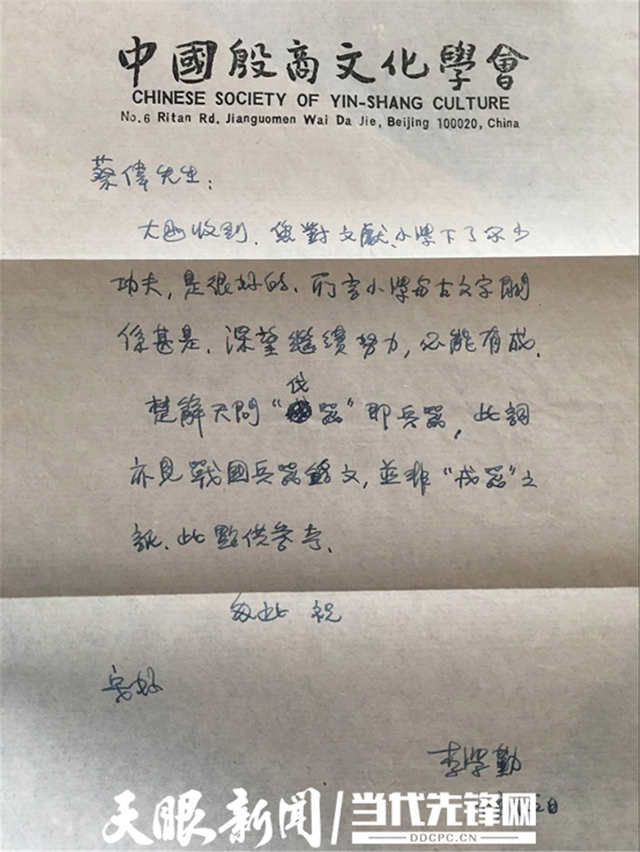 中國殷商文化學會
CHINESE SOCIETY OF YIN-SHANG CULTURE
No.6 Ritan Rd, Jianguomen Wai Da Jie, Beijing 100020, China
蔡偉先生:
大函收到.您對文獻小學下了不少
功夫,是很好的.所言小學与古文字関
係甚是.深望繼續努力,必能有成.
楚辞天問“伐器”即兵器,此詞
亦見戰國兵器銘文,並非“戎器”之
訛.此點供參考.
匆此 祝
安好
李學勤
日
天眼新闻 当代先锋网
DDCPC.CN